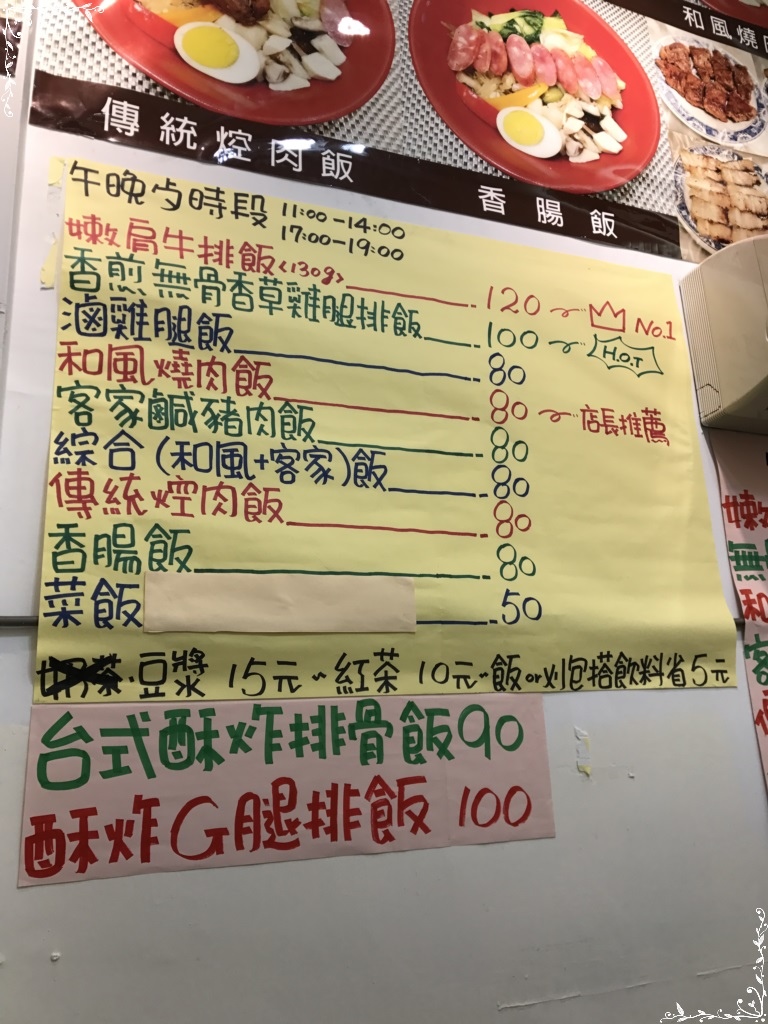 和風燒
傳統焢肉飯
香腸飯
午晚夕時段 11:00-14:00
17:00-19:00
嫩肩牛排飯<130g> 120 No.1
香煎無骨香草雞腿排飯 100 H.O.T
滷雞腿飯 80
和風燒肉飯 80 店長推薦
客家鹹豬肉飯 80
綜合(和風+客家)飯 80
傳統焢肉飯 80
香腸飯 80
菜飯 50
奶茶·豆漿 15元~紅茶 10元~飯or刈包搭飲料省5元
台式酥炸排骨飯90
酥炸G腿排飯 100
嫩
無
和
客